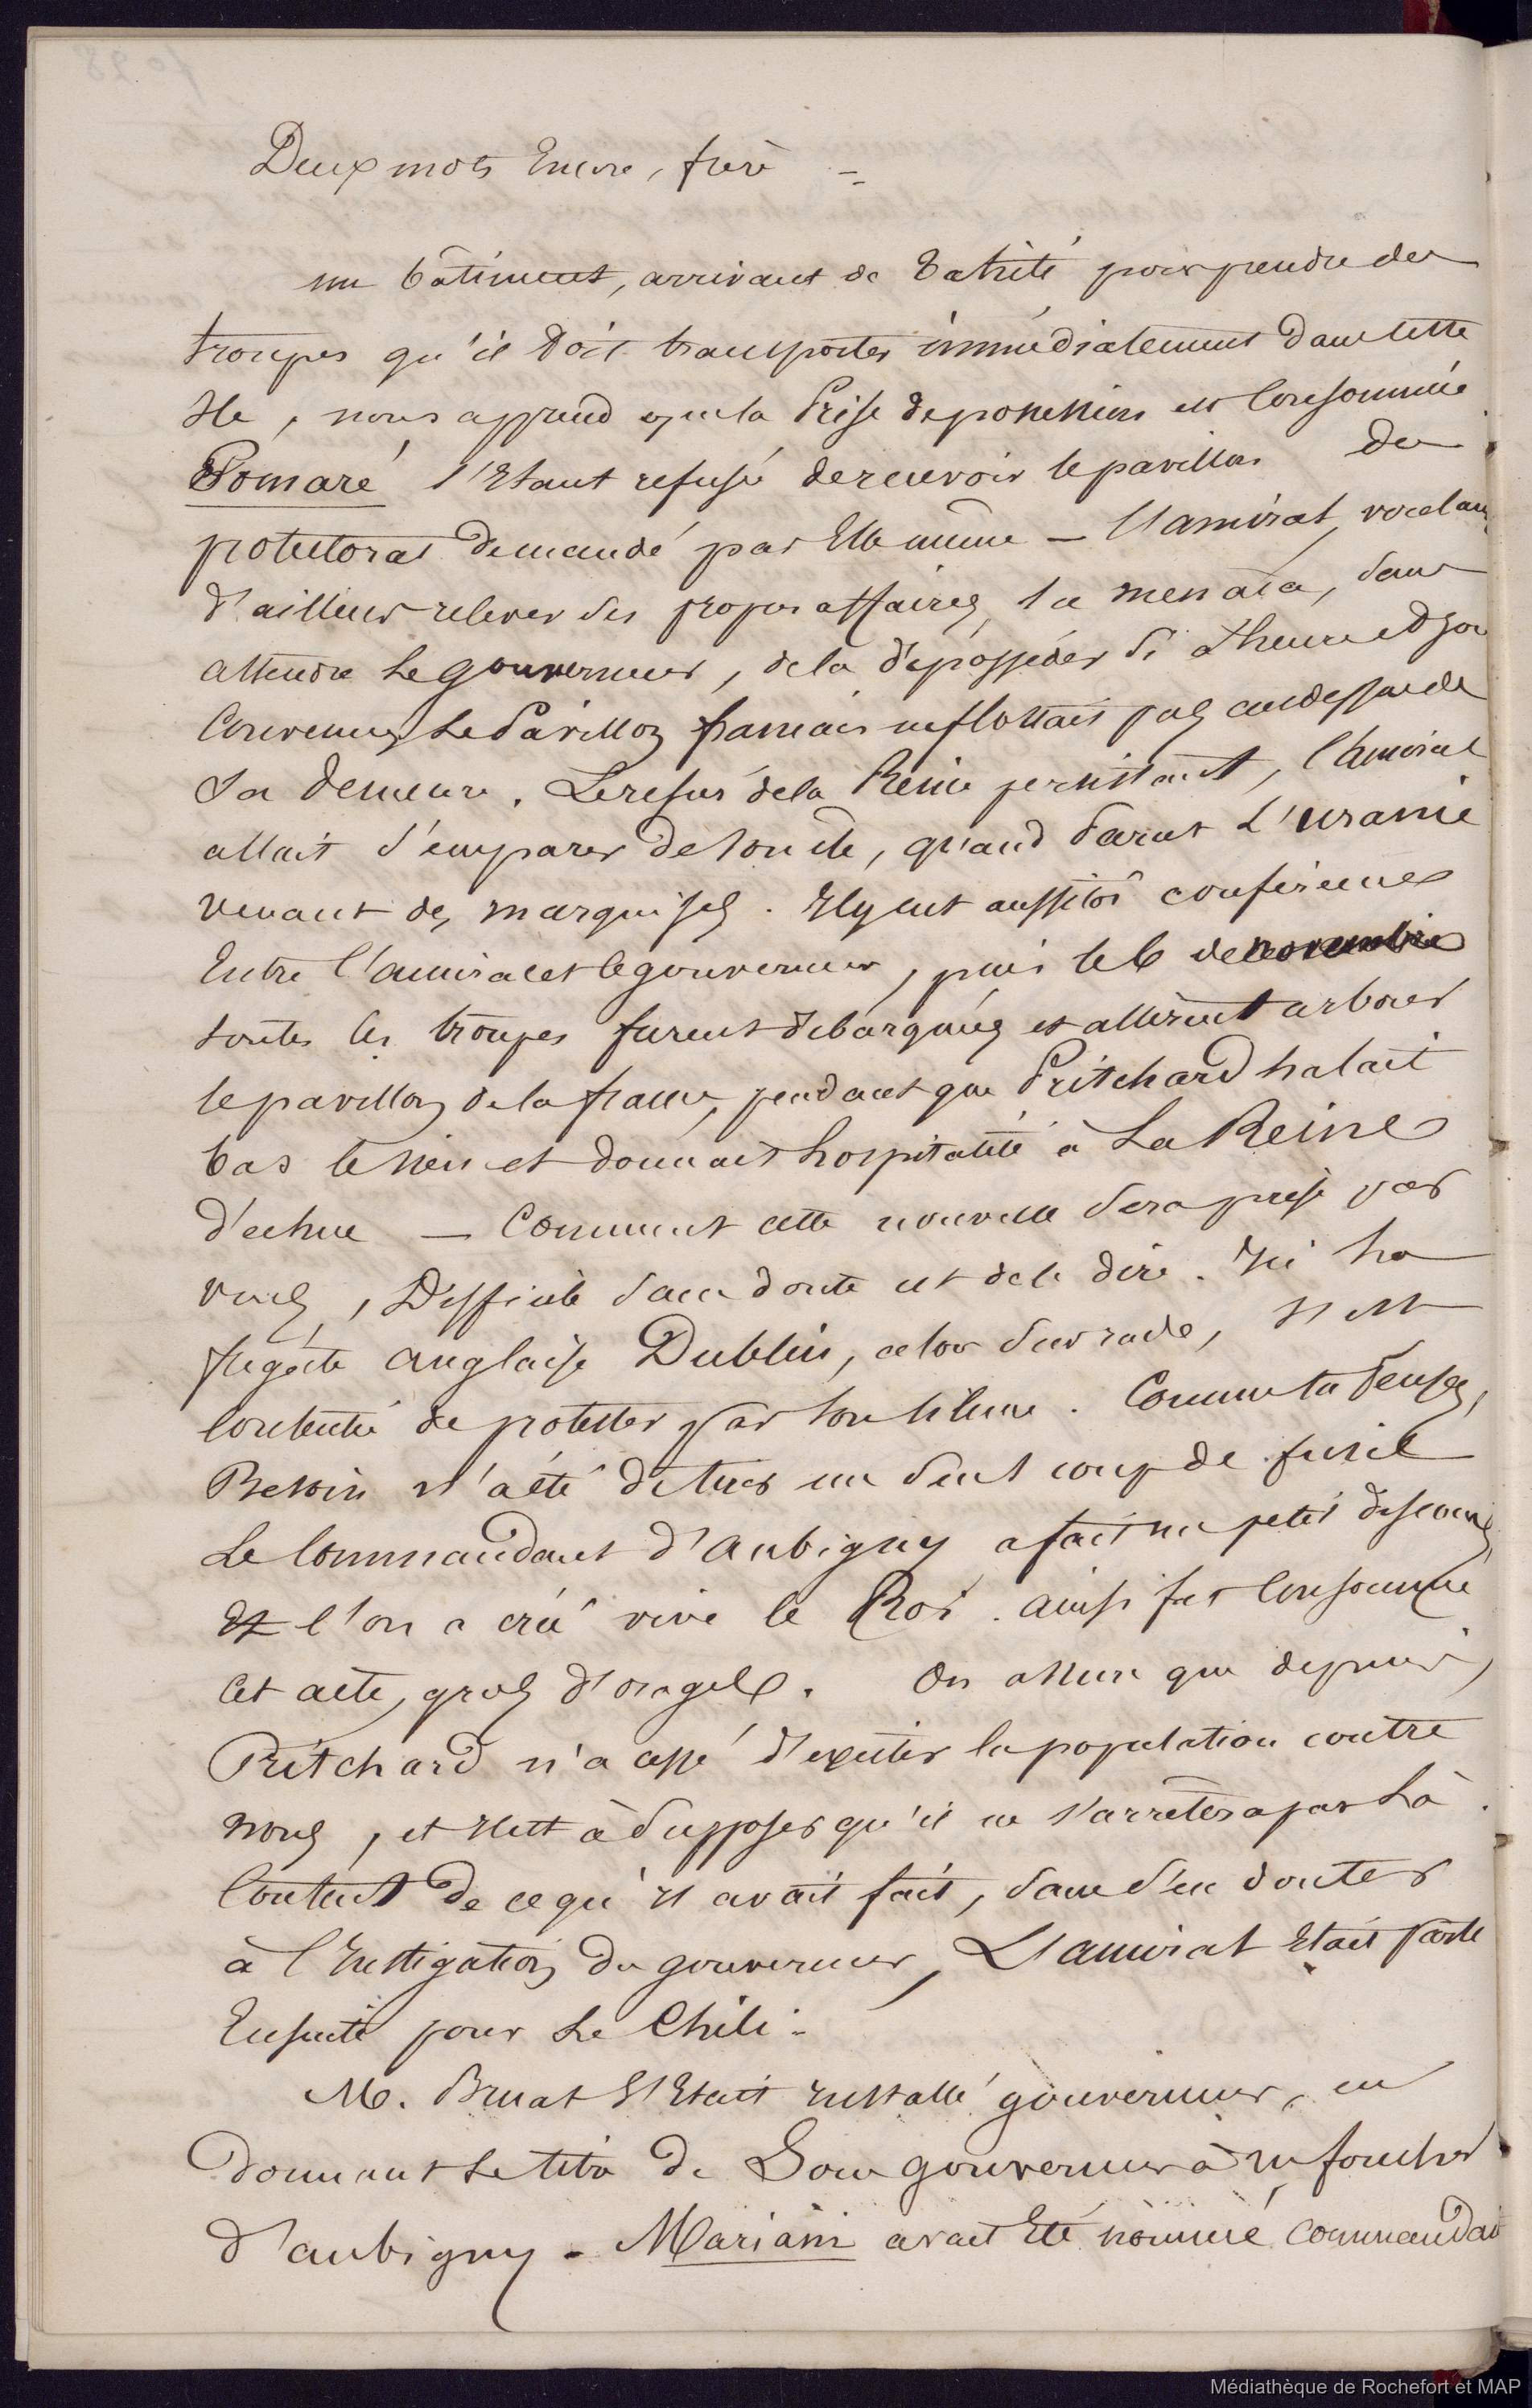 Deux mots Encore, frère =
un bâtiment, arrivant de Tahiti pour prendre des
troupes qu'il doit transporter immédiatement dans cette
Ile, nous apprend que la Prise de possession est Consommée
Pomaré s'Etant refusé de recevoir le pavillon du
protectorat demandé par Elle même — l'amiral, voulant
d'ailleurs relever ses propres affaires, la menaca, sans
attendre Le gouverneur, de la dépossèder si à heure et jour
Convenus Le Pavillon francais ne flottait pas au dessus de
Sa Demeure. Le refus de la Reine persistant, l'amiral
allait s'emparer de son ile, quand Parut L'uranie
venant des marquises. Il y eut aussitôt conférence
Entre l'amiral et le gouverneur, puis le 6 de novembre
toutes les troupes furent débarquées et allèrent arborer
le pavillon de la france, pendant que Pritchard halait
bas le sien et donnait hospitalité à La Reine
d'echue — Comment cette nouvelle sera prise par
vous, Difficile sans doute est de le dire. Ici La
frégate anglaise Dublin, alors sur rade, s'est
Contentée de protester par son silence. Comme tu Penses,
Besoin n'a été de tirer un seul coup de fusil
Le Commandant d'Aubigny a fait un petit discours
et l'on a crié vive le Roi. ainsi fut Consommé
Cet acte, gros d'orages. On assure que depuis,
Pritchard n'a cessé d'exciter la population contre
nous, et Il est à supposer qu'il ne s'arrêtera pas Là.
Content de ce qu'il avait fait, sans s'en douter
à l'Instigation du gouverneur, L'amiral Etait parti
Ensuite pour Le Chili.
M. Bruat s'Etait Installé gouverneur, en
Donnant Le titre de Sous gouverneur à
d'aubigny - Mariani avait Eté nommé Commandant
Médiathèque de Rochefort et MAP